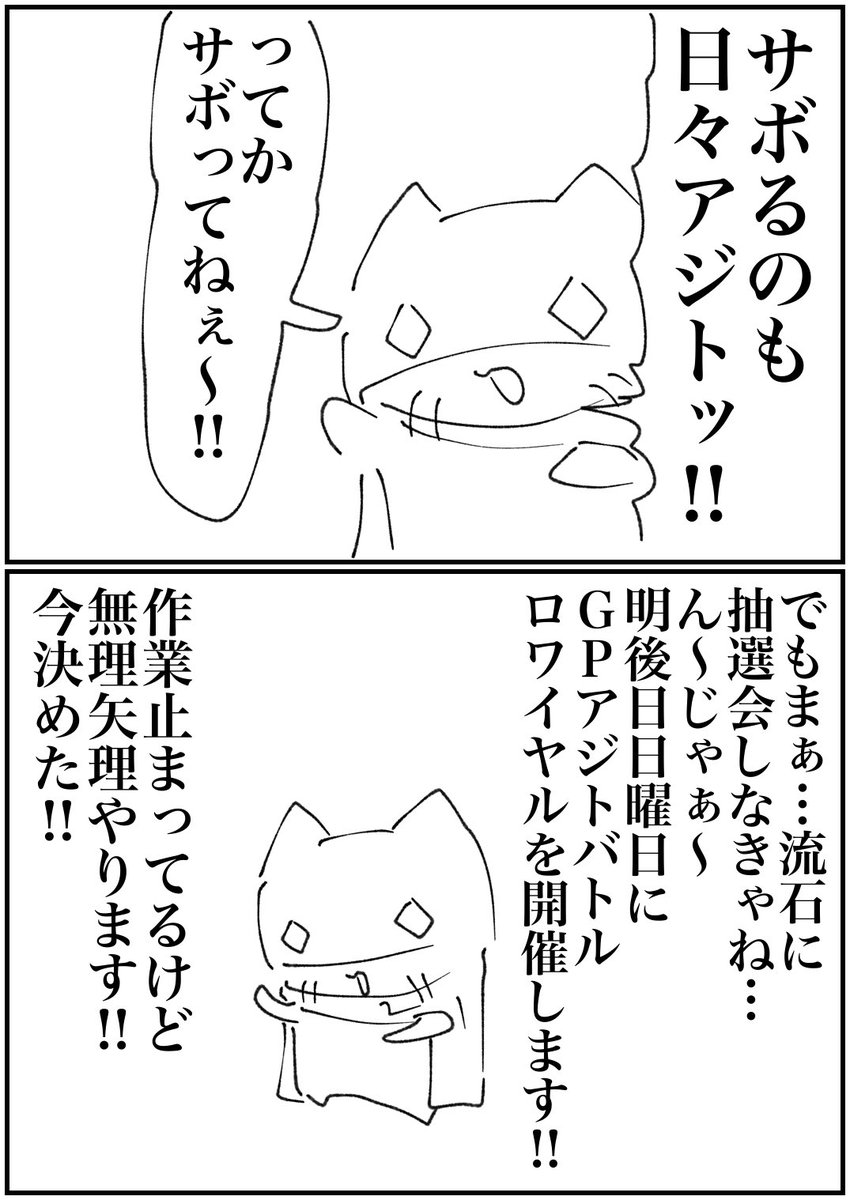 サボるのも
日々アジトッ!!
ってか
サボってねぇ〜!!
でもまぁ…流石に
抽選会しなきゃね…
ん〜じゃぁ〜
明後日日曜日に
GPアジトバトル
ロワイヤルを開催します!!
作業止まってるけど
無理矢理やります!!
今決めた!!